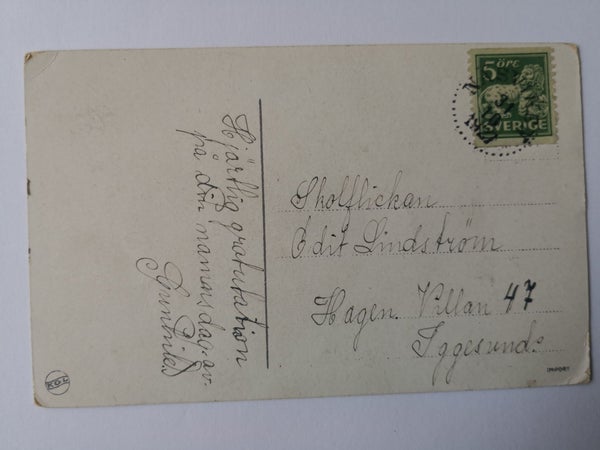 Hjärtlig gratulation
på din namnsdag. av.
Gunhild
5 ÖRE
SVERIGE
Skolflickan
Edit Lindström
Hagen. Villan 47
Iggesund.
K.O.L
IMPORT